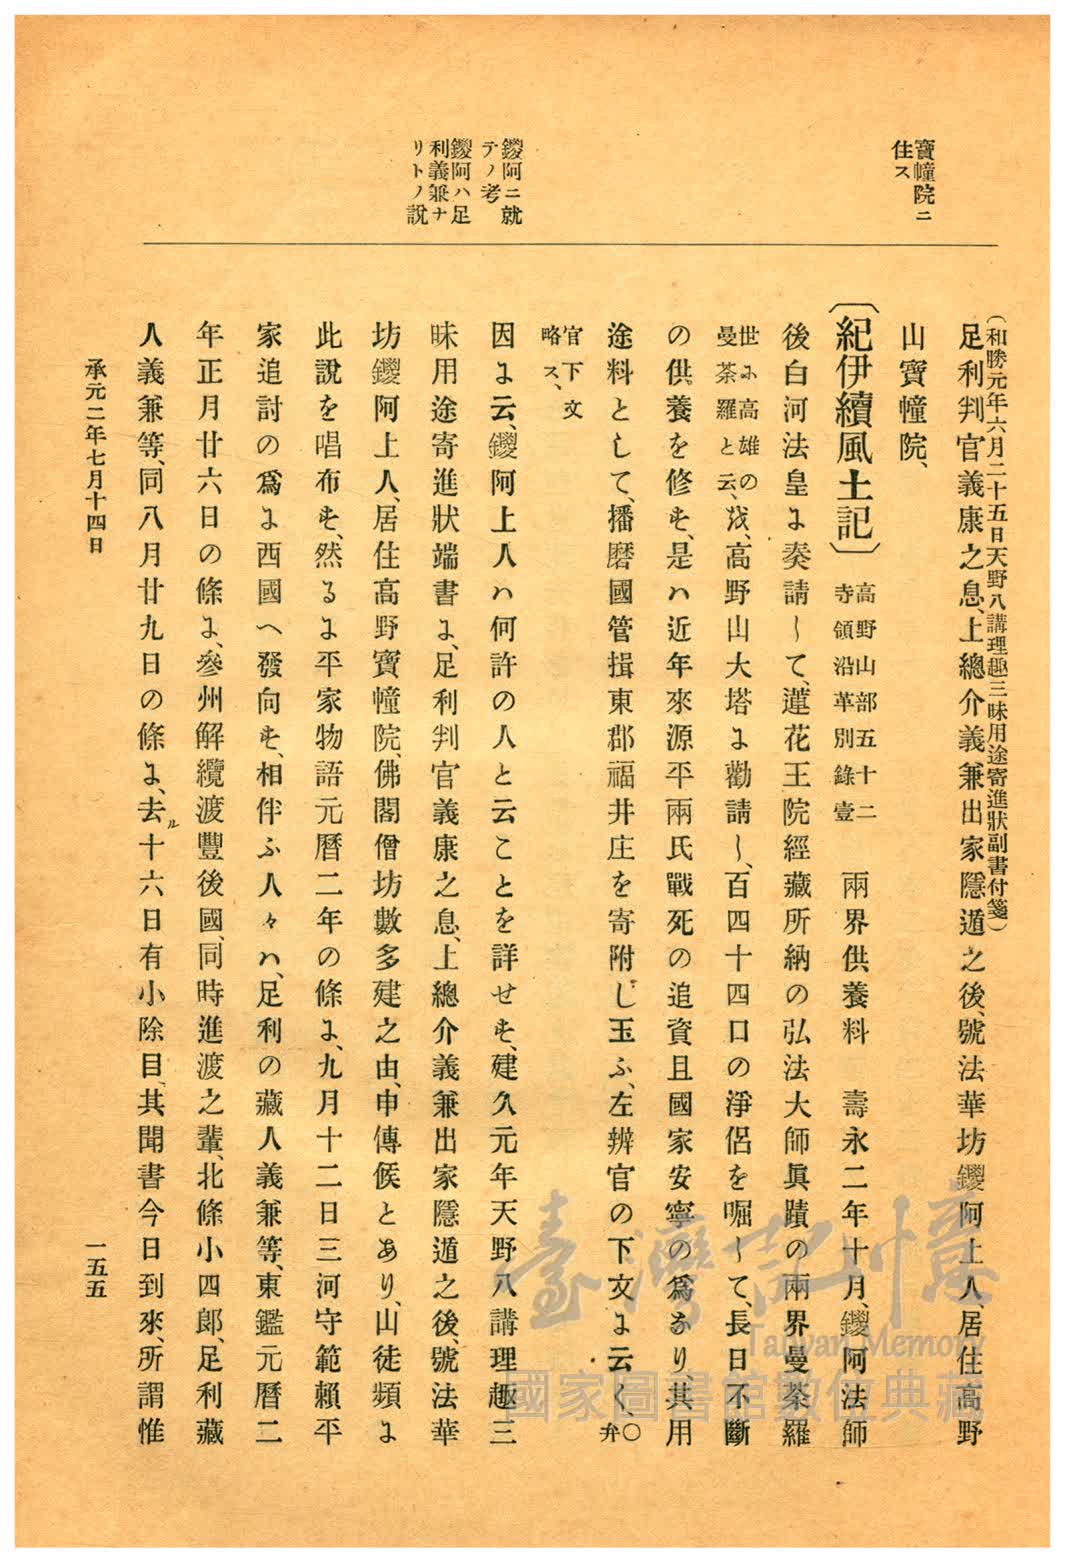 寶幢院ニ
住ス
鑁阿ニ就
テノ考
鑁阿ハ足
利義兼ナ
リトノ說
(和勝元年六月二十五日天野八講理趣三昧用途寄進狀副書付箋)
足利判官義康之息、上總介義兼出家隱遁之後、號法華坊鑁阿上人、居住高野
山寶幢院、
〔紀伊續風土記〕高野山部五十二
寺領沿革別錄壹 兩界供養料 壽永二年十月、鑁阿法師
後白河法皇に奏請して、蓮花王院經藏所納の弘法大師眞蹟の兩界曼荼羅
世に高雄の
曼荼羅と云、を、高野山大塔に勸請し、百四十四口の淨侶を啒して、長日不斷
の供養を修す、是ハ近年來源平兩氏戰死の追資且國家安寧の爲なり、其用
途料として、播磨國管揖東郡福井庄を寄附し玉ふ、左辨官の下文に云く、〇弁
官下文
略ス、
因に云、鑁阿上人ハ何許の人と云ことを詳せす、建久元年天野八講理趣三
昧用途寄進狀端書に、足利判官義康之息、上總介義兼出家隱遁之後、號法華
坊鑁阿上人、居住高野寶幢院、佛閣僧坊數多建之由、申傳候とあり、山徒頻に
此說を唱布す、然るに平家物語元曆二年の條に、九月十二日三河守範賴平
家追討の爲に西國へ發向す、相伴ふ人々ハ、足利の藏人義兼等、東鑑元曆二
年正月廿六日の條に、參州解纜渡豐後國、同時進渡之輩、北條小四郎、足利藏
人義兼等、同八月廿九日の條に、去ル十六日有小除目、其聞書今日到來、所謂惟
承元二年七月十四日
一五五
臺灣記憶
Taiwan Memory
國家圖書館數位典藏